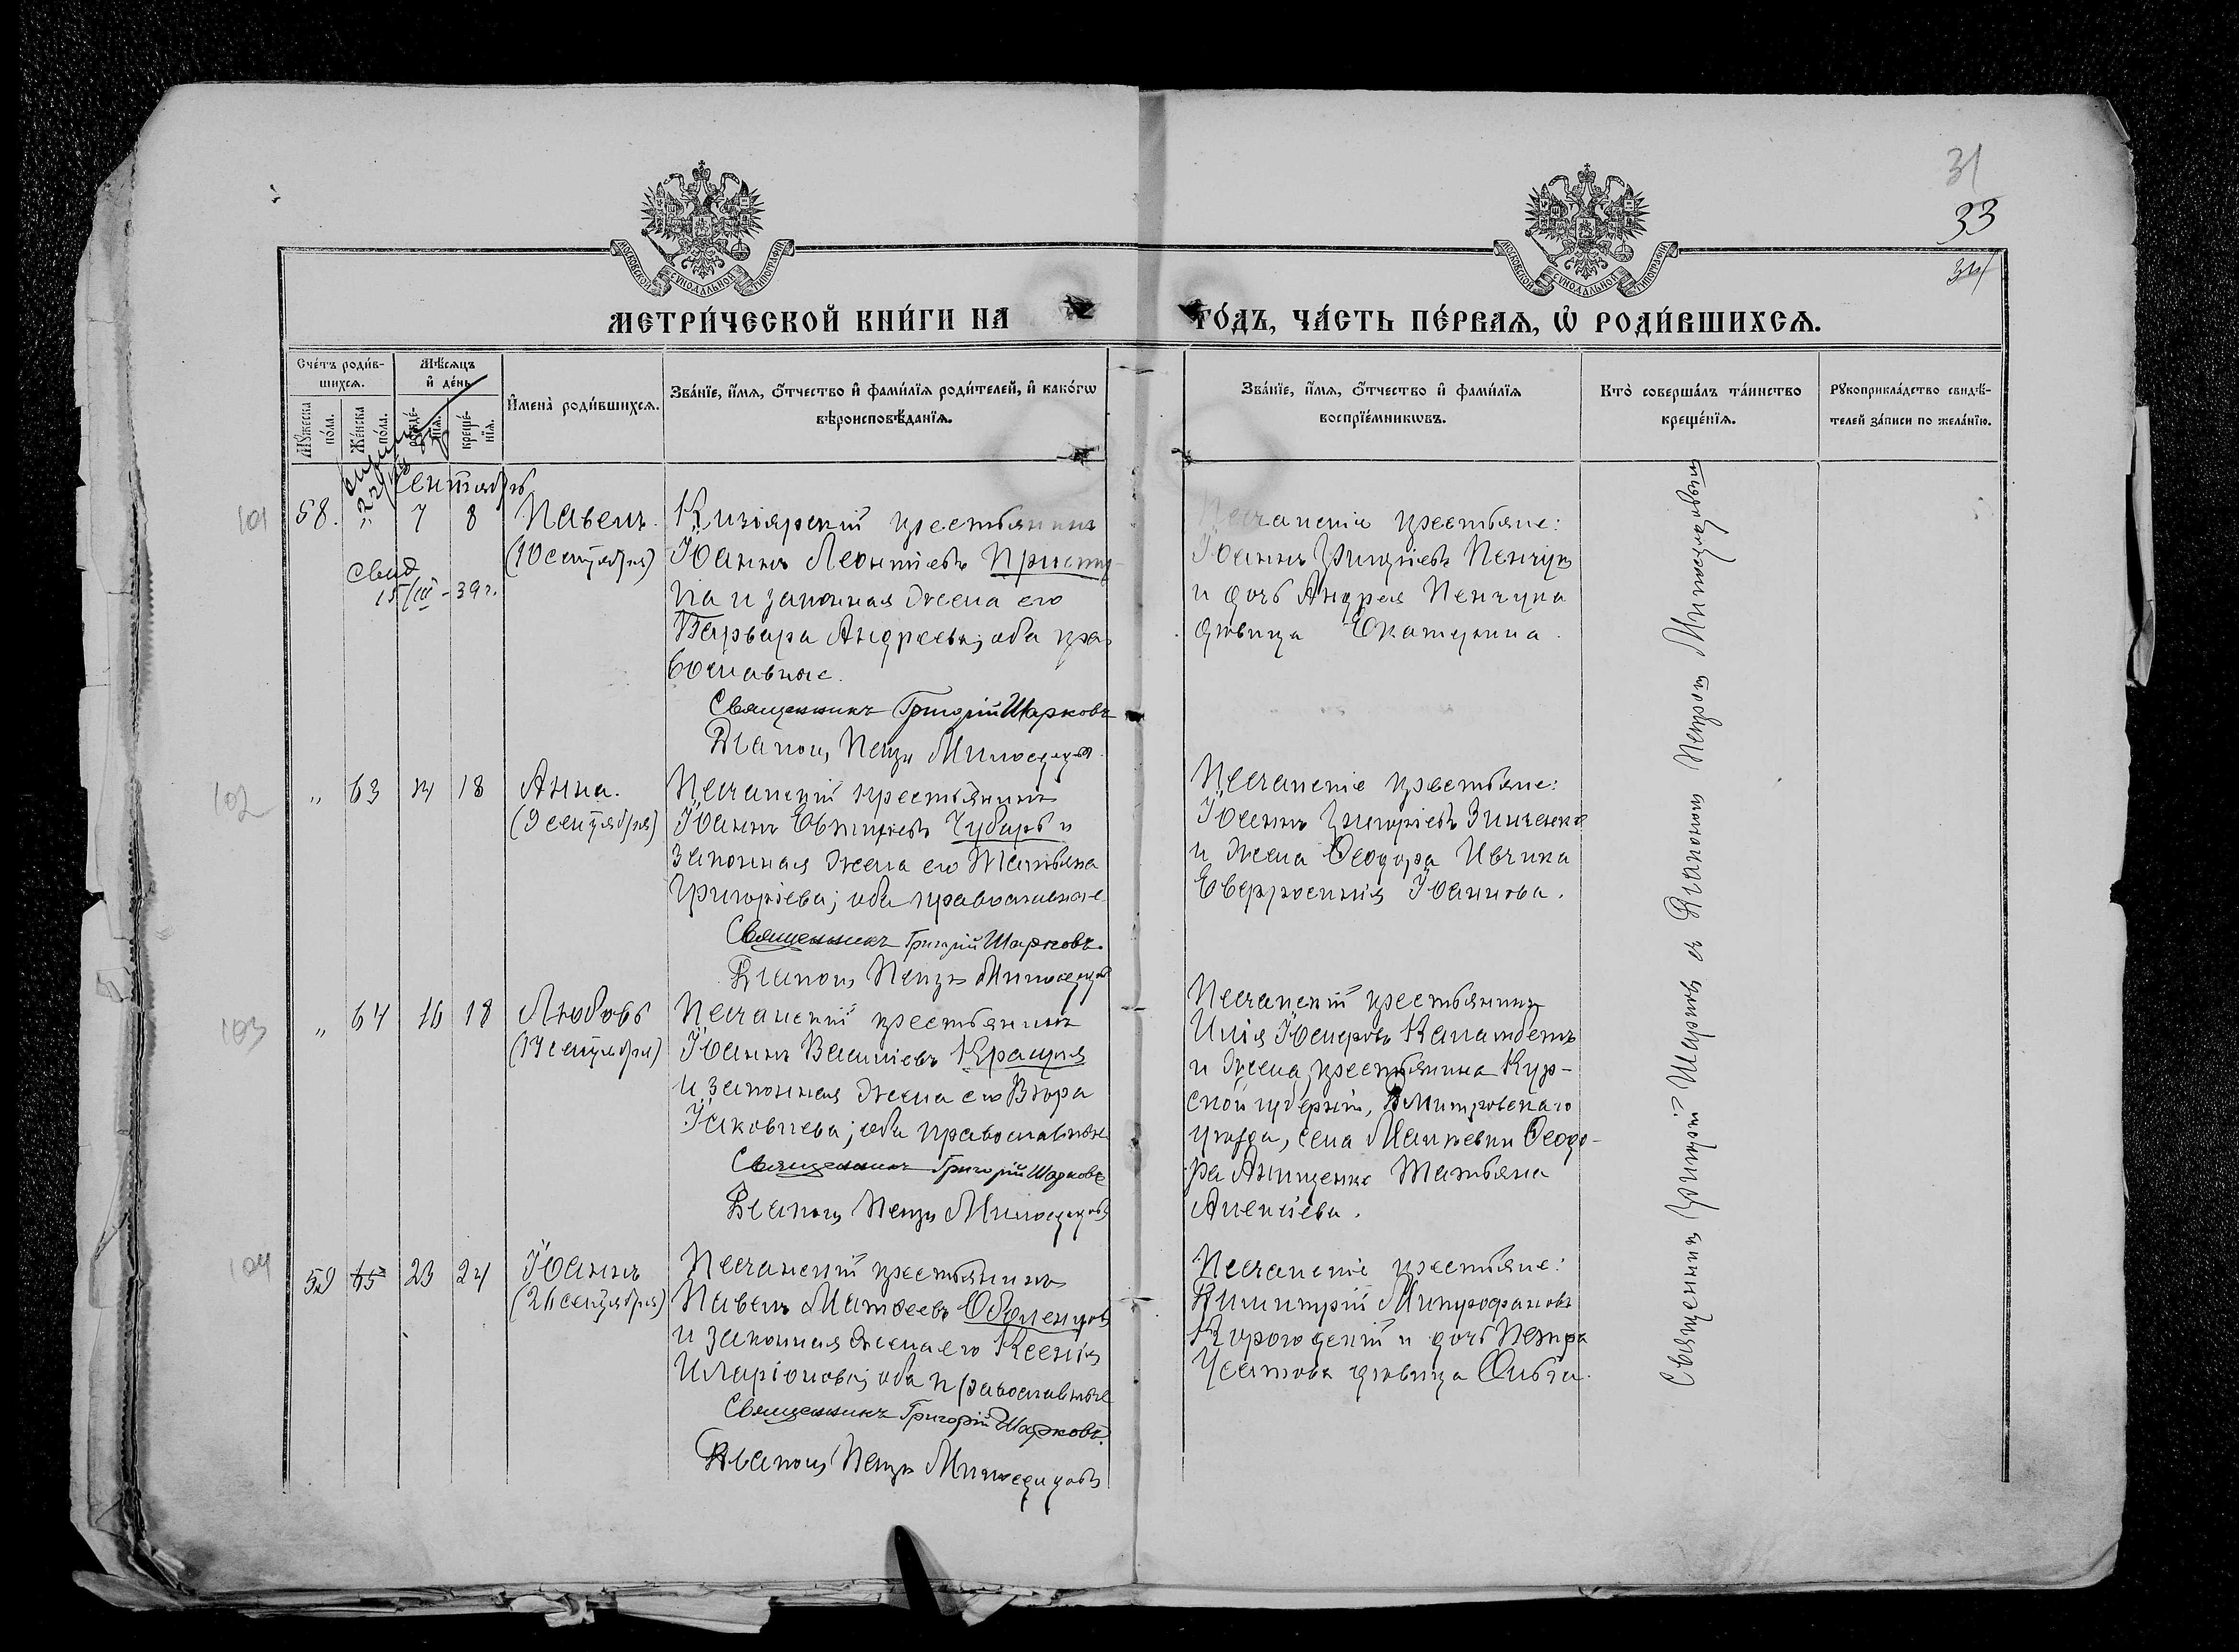 31
33
34
МОСКОВСКОЙ СѴНОДАЛЬНОЙ ТИПОГРАФІИ
МОСКОВСКОЙ СѴНОДАЛЬНОЙ ТИПОГРАФІИ
МЕТРИ́ЧЕСКОЙ КНИ́ГИ НА ГО́ДЪ, ЧА́СТЬ ПЕ́РВАЯ, Ѡ҆ РОДИ́ВШИХСЯ.
Сче́тъ роди́в-
шихся.
Мꙋ́жеска
по́ла.
Же́нска
по́ла.
Мѣ́сяцъ
и҆ де́нь
рожде́-
нїя.
креще́-
нїя.
И҆мена̀ роди́вшихся.
Зва́нїе, и҆́мя, ѻ҆́тчество и҆ фами́лїя роди́телей, и҆ како́гѡ
вѣроисповѣ́данїя.
Зва́нїе, и҆́мя, ѻ҆́тчество и҆ фами́лїя
воспрїе́мникѡвъ.
Кто̀ соверша́лъ та́инство
креще́нїя.
Рꙋкоприкла́дство свидѣ́-
телей за́писи по жела́нїю.
Сентябрь
101
58. " 7 8
Павелъ.
(10 сентября)
свид
15/III-39 г.
крестьянинъ
Іоаннъ Леонтіевъ Присту-
па и законная жена его
Варвара Андреева; оба пра-
вославные.
Священникъ Григорій Шарковъ
Діаконъ Петръ Милосердовъ
Песчанскіе крестьяне:
Іоаннъ Григоріевъ Пенчукъ
и дочь Андрея Пенчука
дѣвица Екатерина.
102
" 63 14 18
Анна.
(9 сентября)
Песчанскій крестьянинъ
Іоаннъ Евтихіевъ Чубарь и
законная жена его Татьяна
Григоріева; оба православные
Священникъ Григорій Шарковъ.
Діаконъ Петръ Милосердовъ
Песчанскіе крестьяне:
Іоаннъ Григоріевъ Зинченко
и жена Ѳеодора Ивчика
Евфросинія Іоаннова.
103
" 64 16 18
Любовь
(17 сентября)
Песчанскій крестьянинъ
Іоаннъ Василіевъ
и законная жена его Вѣра
Іаковлева; оба православные
Священникъ Григорій Шарковъ
Діаконъ Петръ Милосердовъ
Песчанскій крестьянинъ
Илія
и жена крестьянина Кур-
ской губерніи, Дмитровскаго
уѣзда, села Ѳеодо-
ра Анищенко Татьяна
Алексіева.
104
59 65 23 24
Іоаннъ
(26 сентября)
Песчанскій крестьянинъ
Павелъ Матѳеевъ
и законная жена его Ксенія
Иларіонова; оба православные
Священникъ Григорій Шарковъ.
Діаконъ Петръ Милосердовъ
Песчанскіе крестьяне:
Димитрій Митрофановъ
и дочь Петра
Усатова дѣвица Ольга.
Священникъ Григорій Шарковъ съ Діакономъ Петромъ Милосердовымъ